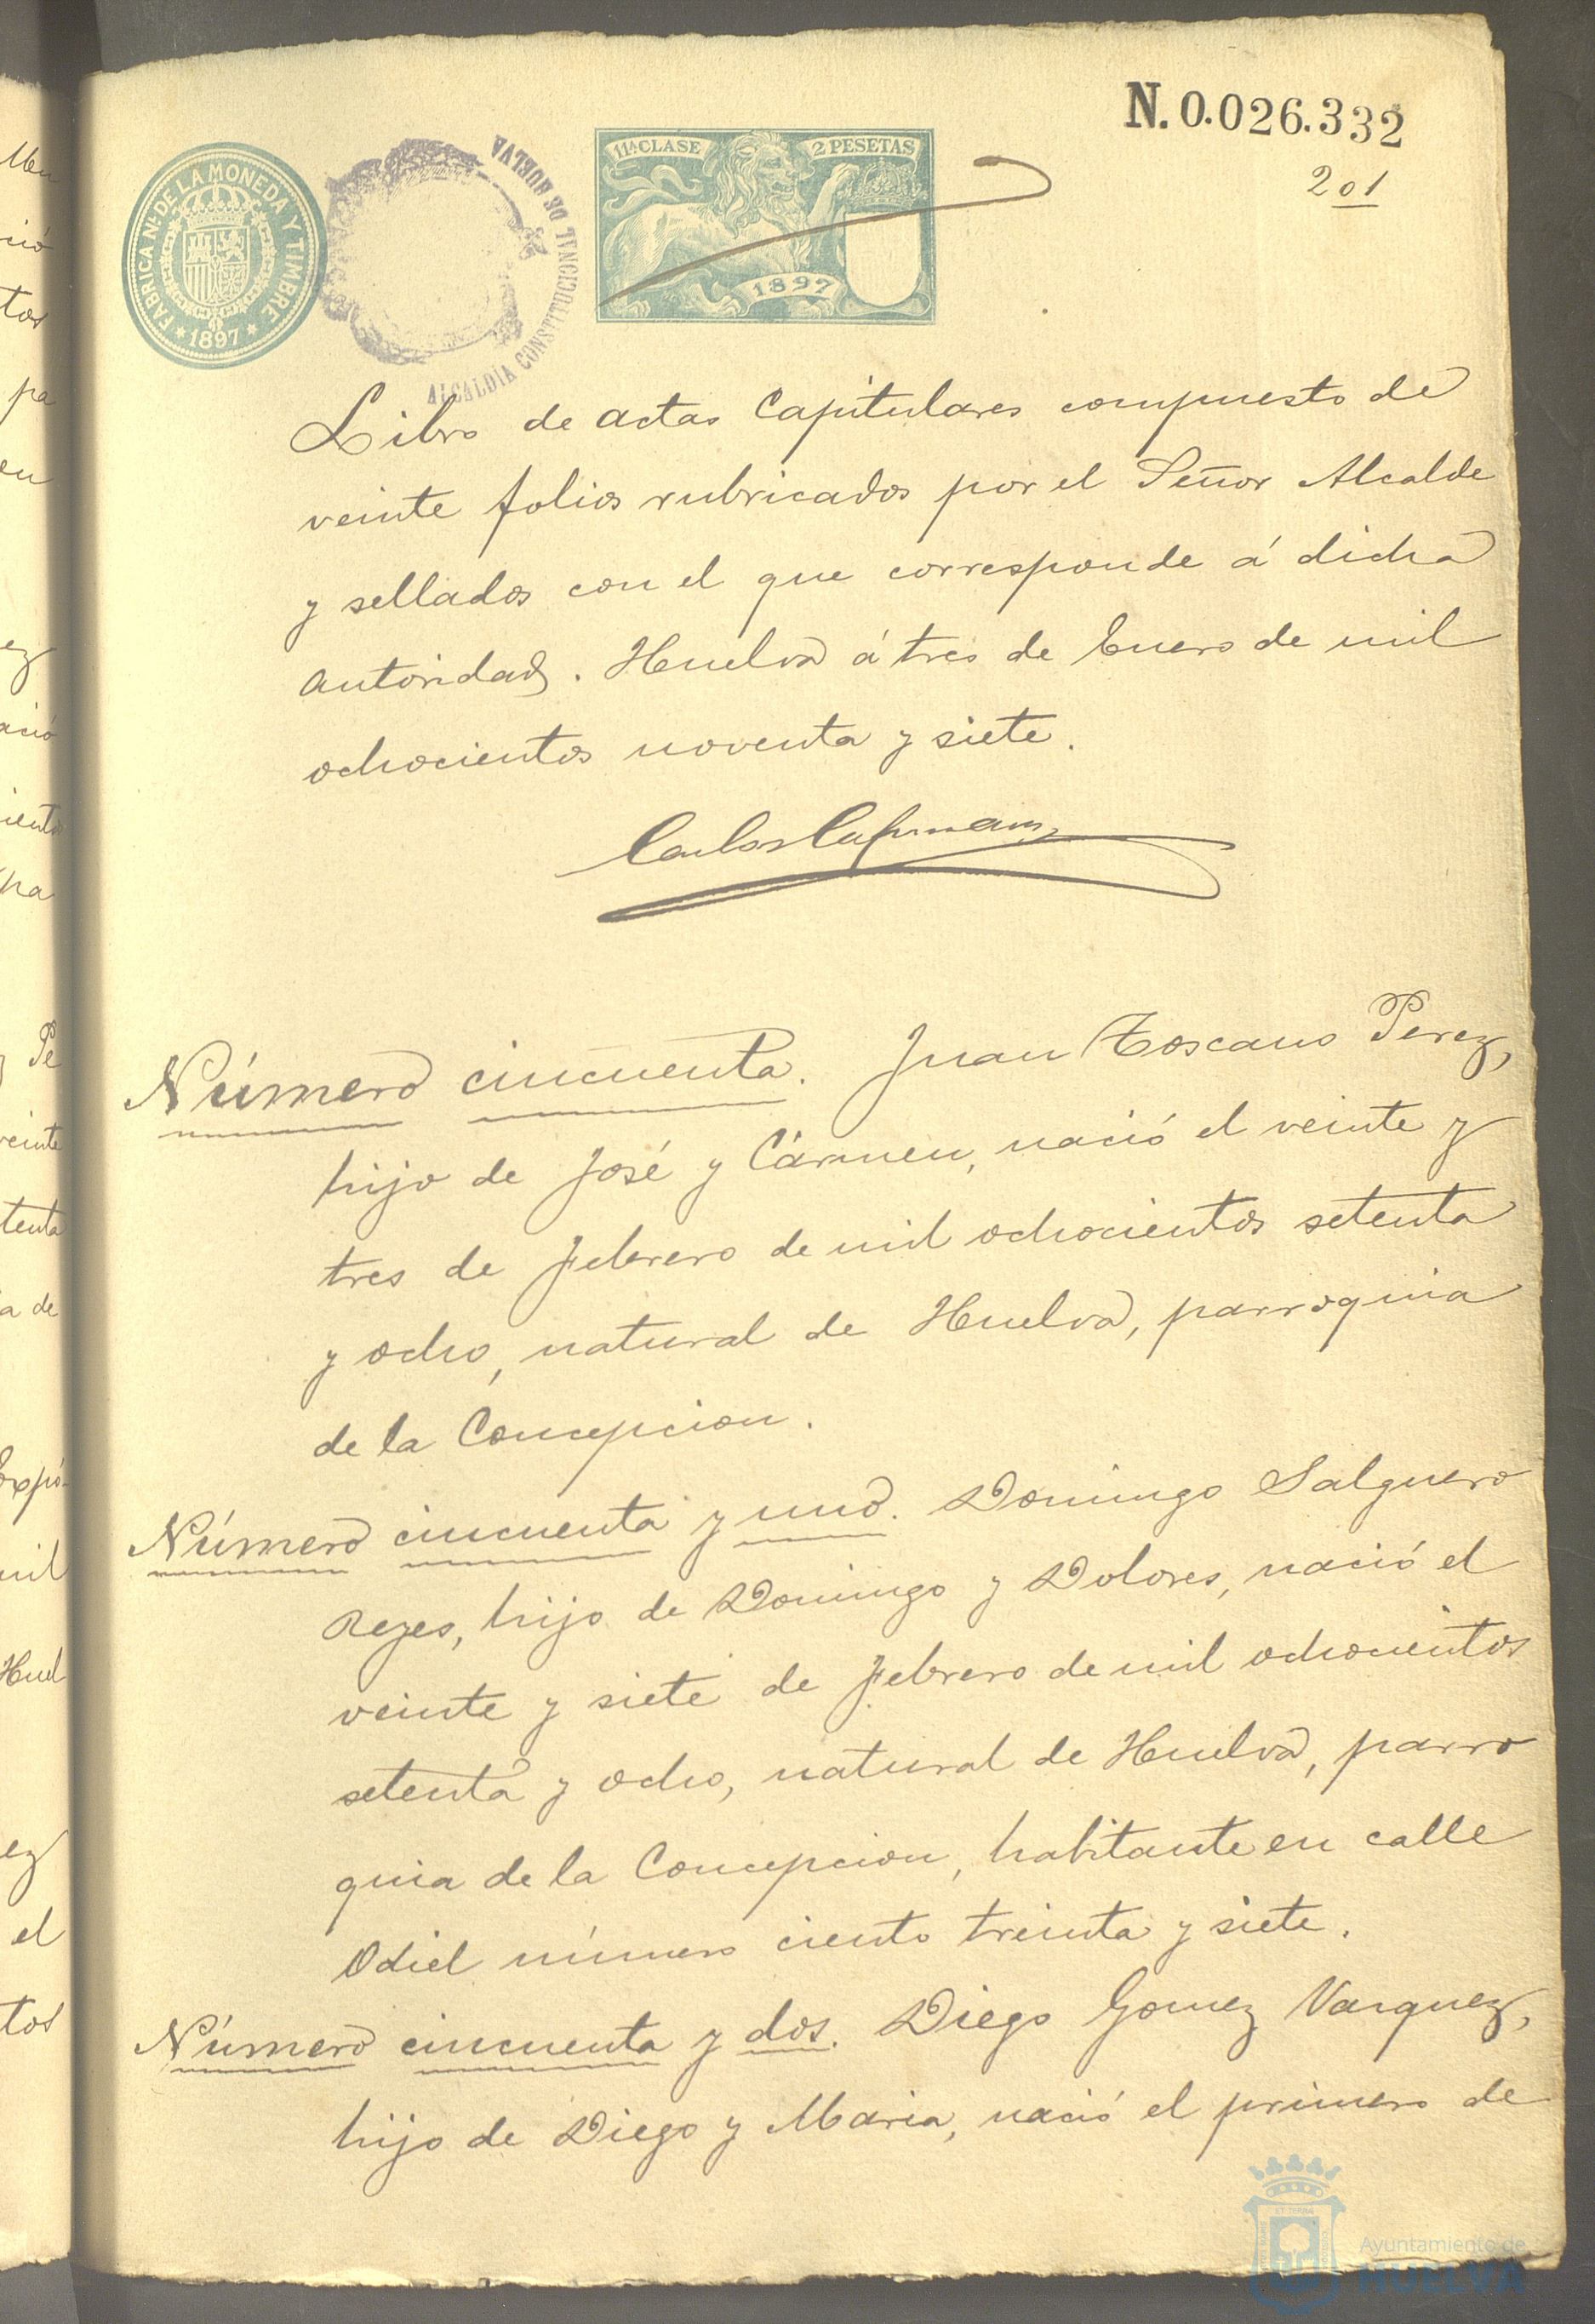 N. 0.026.332
201
FÁBRICA Nᴸ DE LA MONEDA Y TIMBRE
* 1897 *
ALCALDÍA CONSTITUCIONAL DE HUELVA
11ª CLASE
2 PESETAS
1897
Libro de actas Capitulares compuesto de
veinte folios rubricados por el Señor Alcalde
y sellados con el que corresponde á dicha
autoridad. Huelva á tres de Enero de mil
ochocientos noventa y siete.
Carlos
Número cincuenta. Juan Toscano Perez,
hijo de José y Cármen, nació el veinte y
tres de Febrero de mil ochocientos setenta
y ocho, natural de Huelva, parroquia
de la Concepcion.
Número cincuenta y uno. Domingo Salguero
Reyes, hijo de Domingo y Dolores, nació el
veinte y siete de Febrero de mil ochocientos
setenta y ocho, natural de Huelva, parro
quia de la Concepcion, habitante en calle
Odiel número ciento treinta y siete.
Número cincuenta y dos. Diego Gomez Vazquez,
hijo de Diego y Maria, nació el primero de
Ayuntamiento de
HUELVA